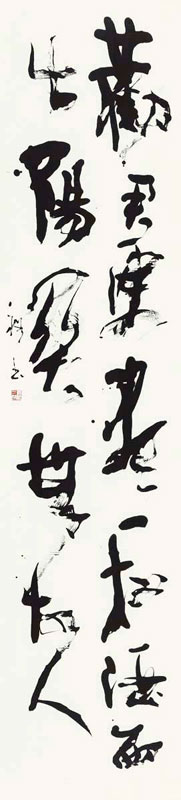 勸君更盡一杯酒西
出陽關無故人